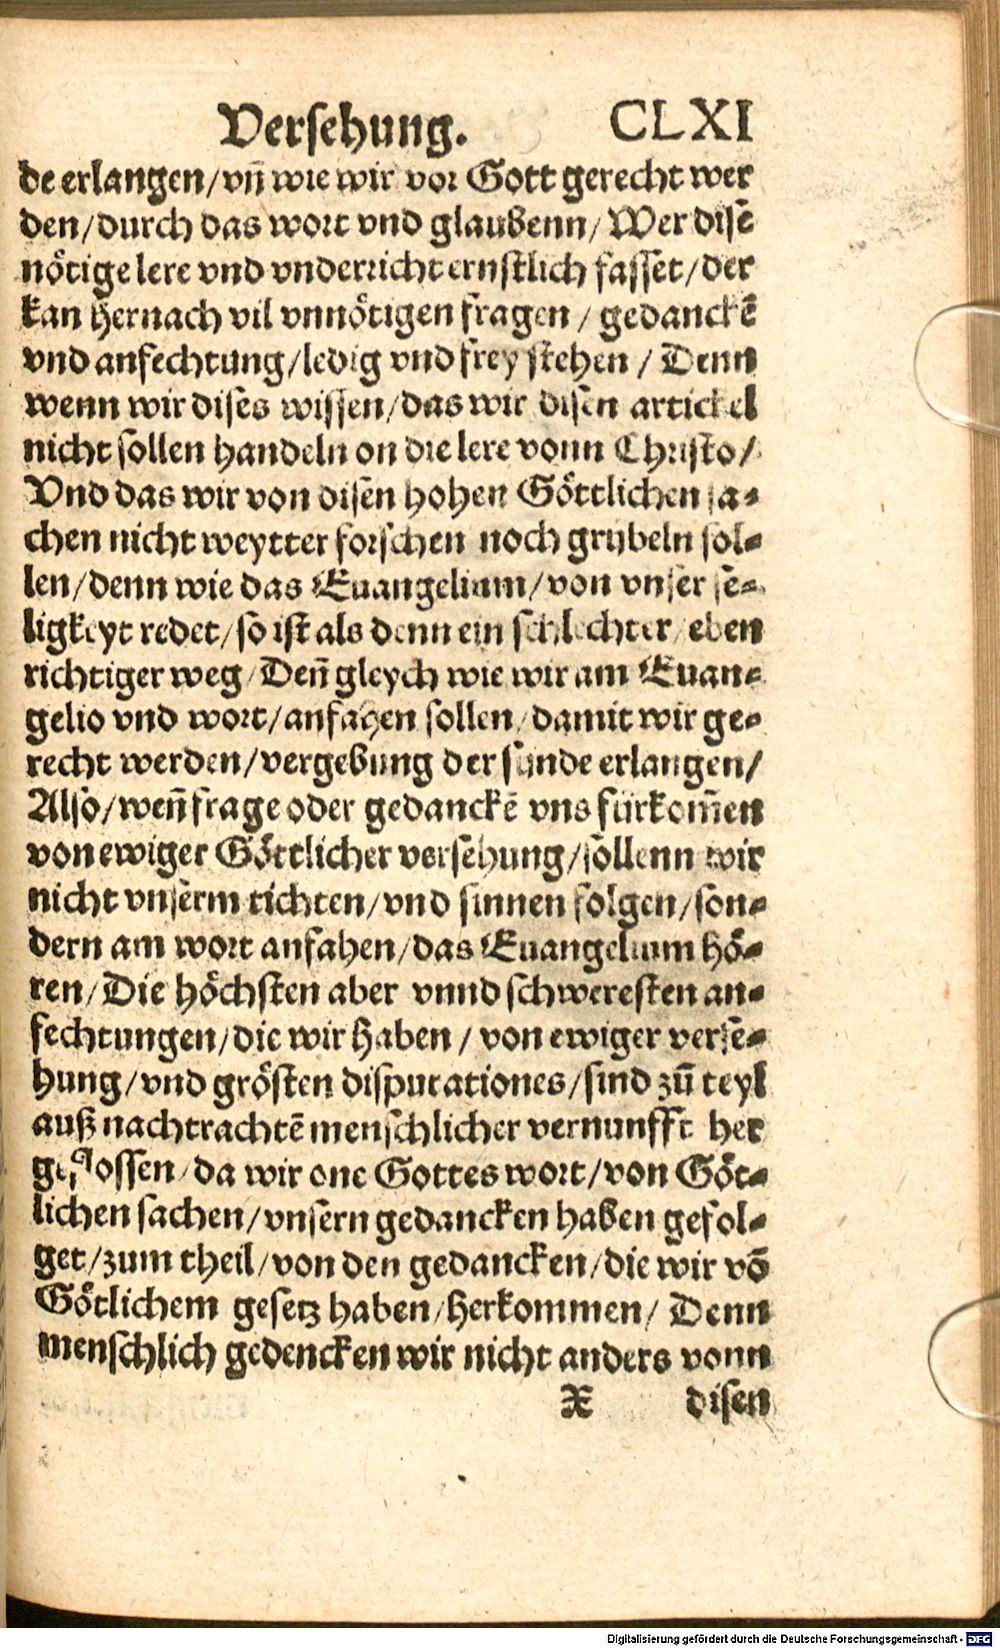 Versehung. CLXI
de erlangen/vñ wie wir vor Gott gerecht wer
den/durch das wort vnd glaubenn/Wer disē
nötige lere vnd vnderricht ernstlich fasset/der
kan hernach vil vnnötigen fragen/gedanckē
vnd anfechtung/ledig vnd frey stehen/Denn
wenn wir dises wissen/das wir disen artickel
nicht sollen handeln on die lere vonn Christo/
Vnd das wir von disen hohen Göttlichen sa-
chen nicht weytter forschen noch grybeln sol-
len/denn wie das Euangelium/von vnser se-
ligkeyt redet/so ist als denn ein schlechter/eben
richtiger weg/Deñ gleych wie wir am Euan-
gelio vnd wort/anfahen sollen/damit wir ge-
recht werden/vergebung der sünde erlangen/
Also/weñ frage oder gedanckē vns fürkom̄en
von ewiger Göttlicher versehung/söllenn wir
nicht vnserm tichten/vnd sinnen folgen/son-
dern am wort anfahen/das Euangelium hö-
ren/Die höchsten aber vnnd schweresten an-
fechtungen/die wir haben/von ewiger verse-
hung/vnd grösten disputationes/sind zū teyl
auß nachtrachtē menschlicher vernunfft her
geflossen/da wir one Gottes wort/von Göt-
lichen sachen/vnsern gedancken haben gefol-
get/zum theil/von den gedancken/die wir vō
Götlichem gesetz haben/herkommen/Denn
menschlich gedencken wir nicht anders vonn
X disen
Digitalisierung gefördert durch die Deutsche Forschungsgemeinschaft - DFG